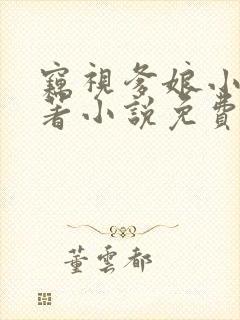 窺視爹娘小
著小說免費
董雲都